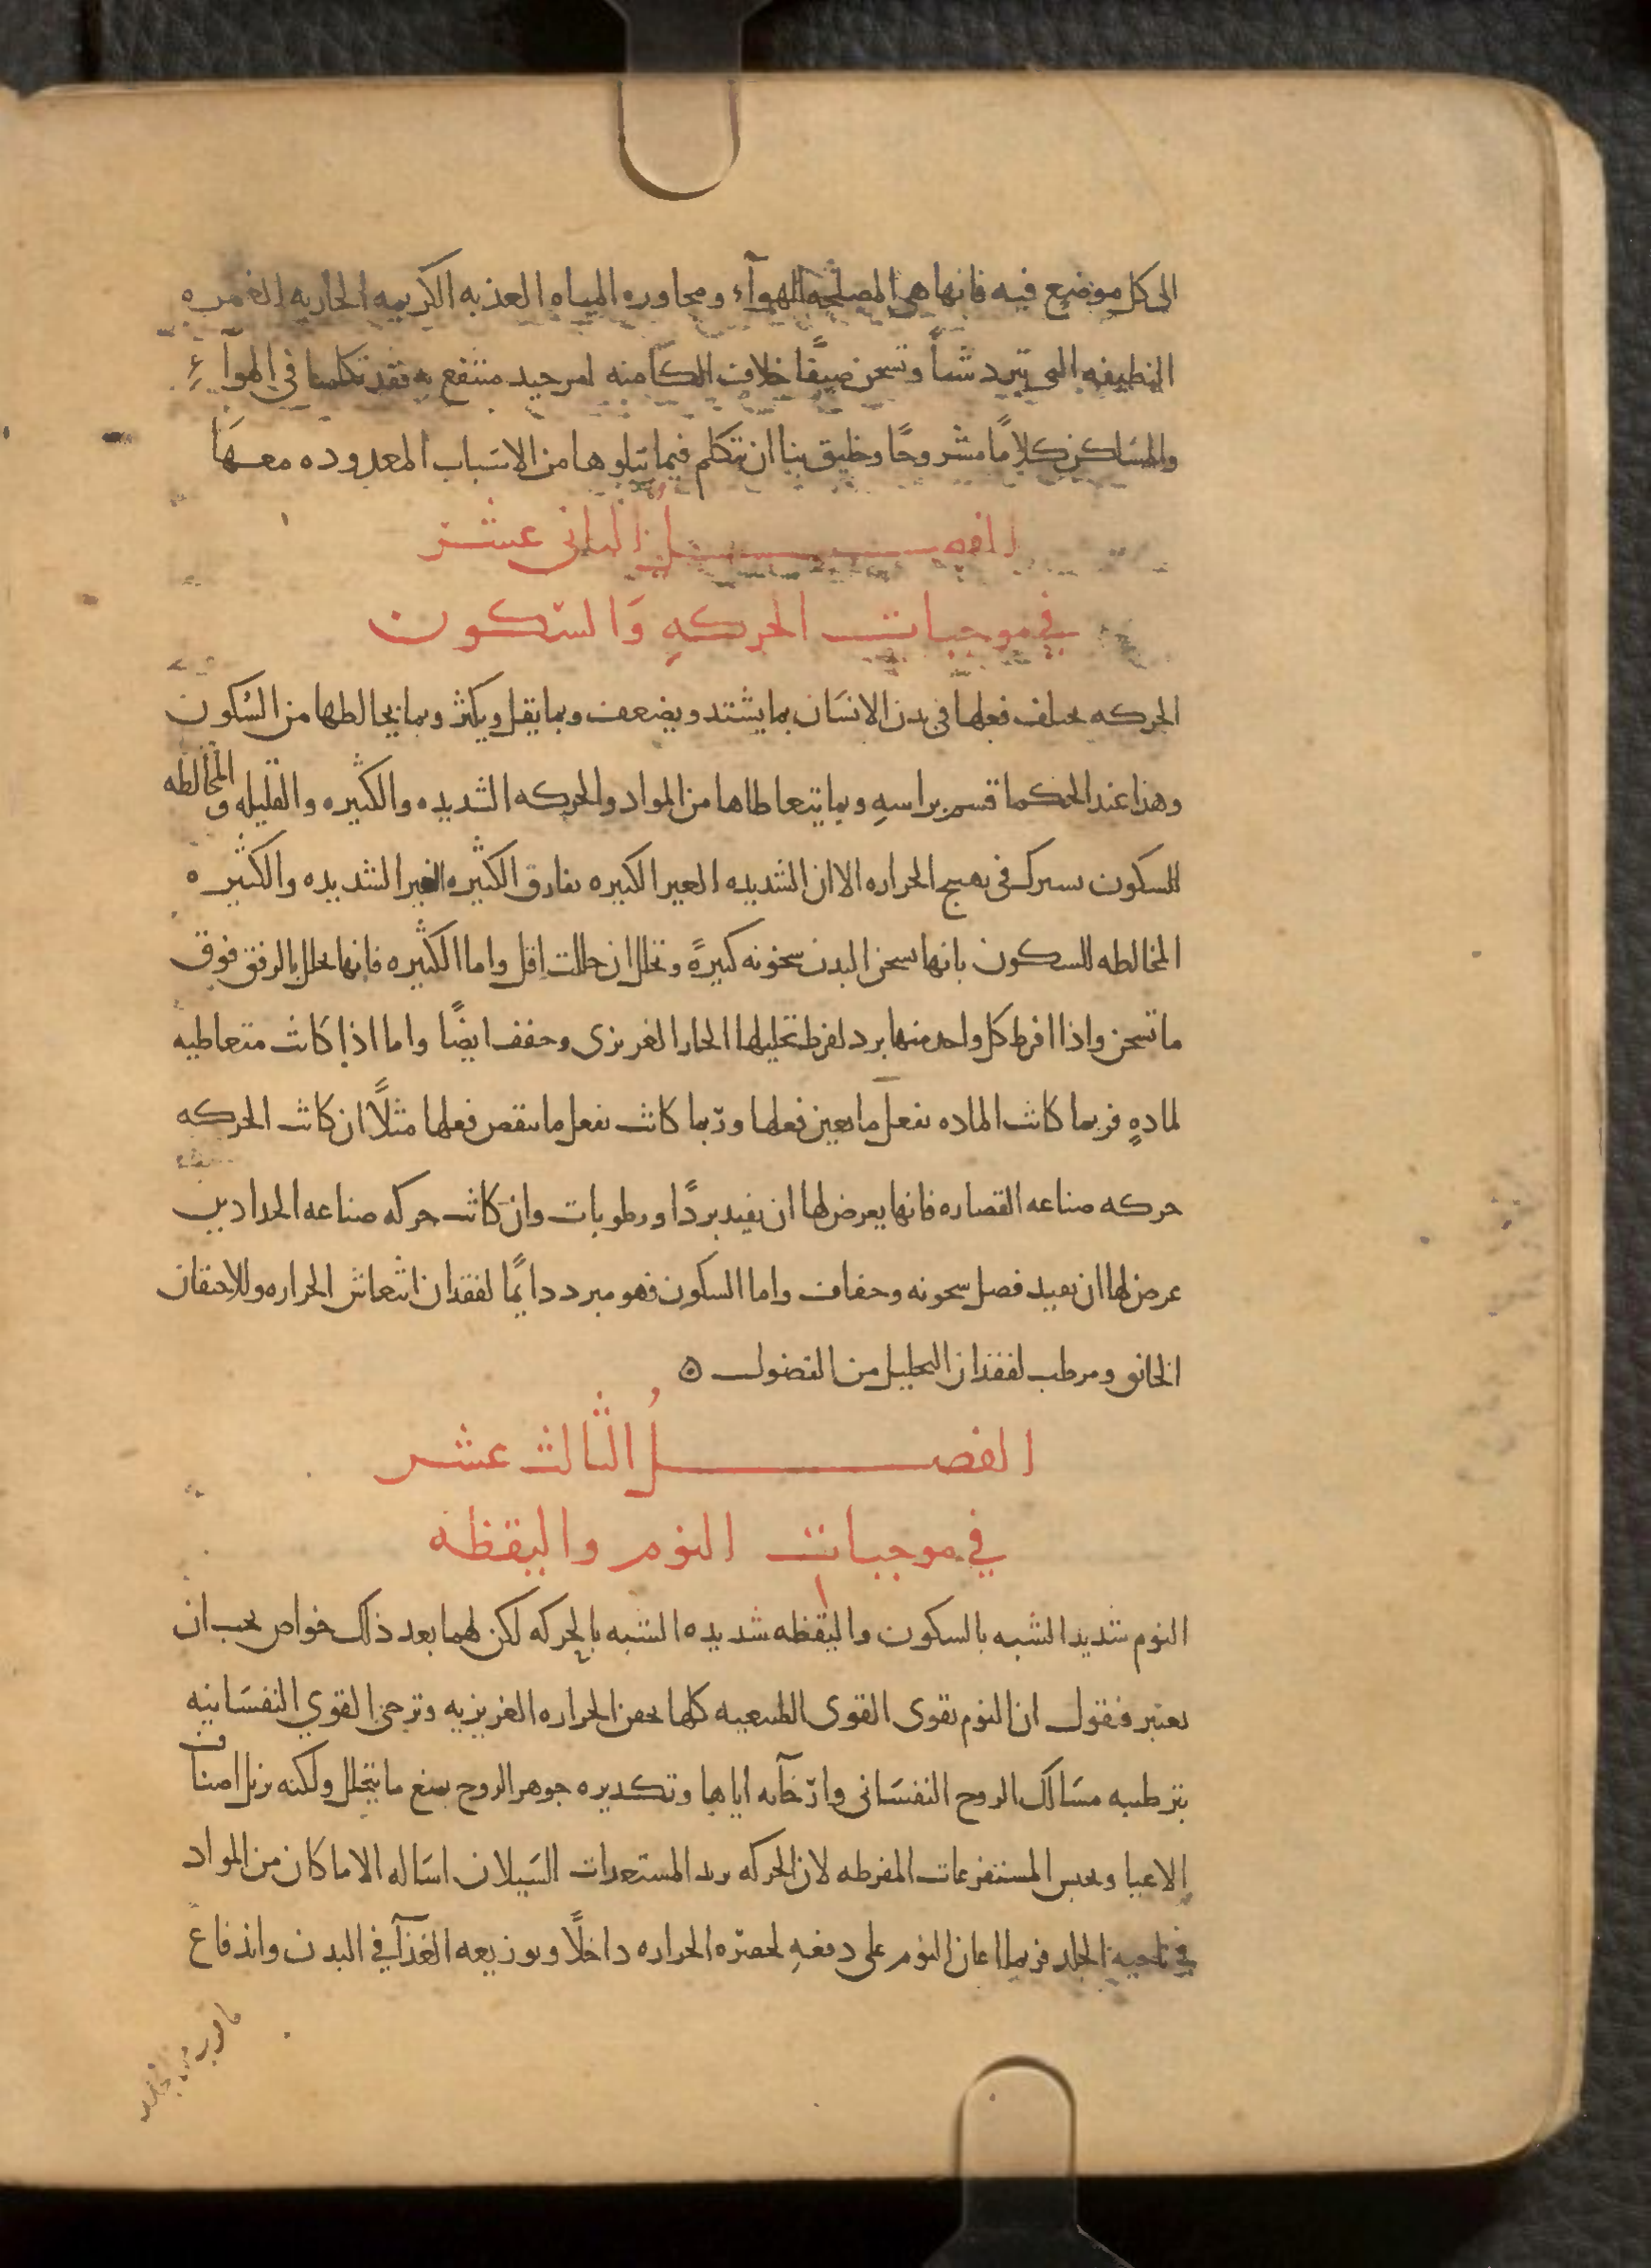 الى كل موضع فيه فانها هي المصلحه للهوآء ومجاوره المياه العذبه الكريمه الجاريه الغمره
النظيفه التي تبرد شتاً وتسخن صيفًا خلاف الكامنه امر جيد منتفع به فقد تكلمنا في الهوآء
والمساكن كلامًا مشروحًا وخليق بنا ان نتكلم فيما يتلوها من الاسباب المعدوده معها
الفصل الثاني عشر
في موجبات الحركه والسكون
الحركه يختلف فعلها في بدن الانسان بما يشتد ويضعف وبما يقل ويكثر وبما يخالطها من السكون
وهذا عند الحكما قسم براسه وبما يتعاطاها من المواد والحركه الشديده والكثيره والقليله والمخالطه
للسكون يشترك في تهييج الحراره الا ان الشديده الغير الكثيره تفارق الكثيره الغير الشديده والكثيره
المخالطه للسكون بانها تسخن البدن سخونه كثيرةً وتحلل ان حللت اقل واما الكثيره فانها تحلل بالرفق فوق
ما تسخن واذا افرط كل واحد منها برد لفرط تحليلها الحار الغريزى وجفف ايضًا واما اذا كانت متعاطيه
لمادهٍ فربما كانت الماده تفعل ما يعين فعلها وربما كانت تفعل ما ينقص فعلها مثلاً ان كانت الحركه
حركه صناعه القصاره فانها يعرض لها ان تفيد بردًا ورطوبات وان كانت حركه صناعه الحدادين
عرض لها ان تفيد فضل سخونه وجفاف واما السكون فهو مبرد دايمًا لفقدان انتعاش الحراره وللاحتقان
الخانق ومرطب لفقدان التحليل من الفضول ه
الفصل الثالث عشر
في موجبات النوم واليقظه
النوم شديد الشبه بالسكون واليقظه شديده الشبه بالحركه لكن لهما بعد ذلك خواص يجب ان
تعتبر فنقول ان النوم يقوى القوى الطبيعيه كلها بحقن الحراره الغريزيه وترخى القوي النفسانيه
بترطيبه مسالك الروح النفساني وارخآئه اياها وتكديره جوهر الروح يمنع ما يتحلل ولكنه يزيل اصناف
الاعيا ويحبس المستفرغات المفرطه لان الحركه يزيد المستعدات السيلان اساله الا ما كان من المواد
في ناحيه الجلد فربما اعان النوم على دفعهِ لحصره الحراره داخلًا وتوزيعه الغذآ في البدن واندفاع